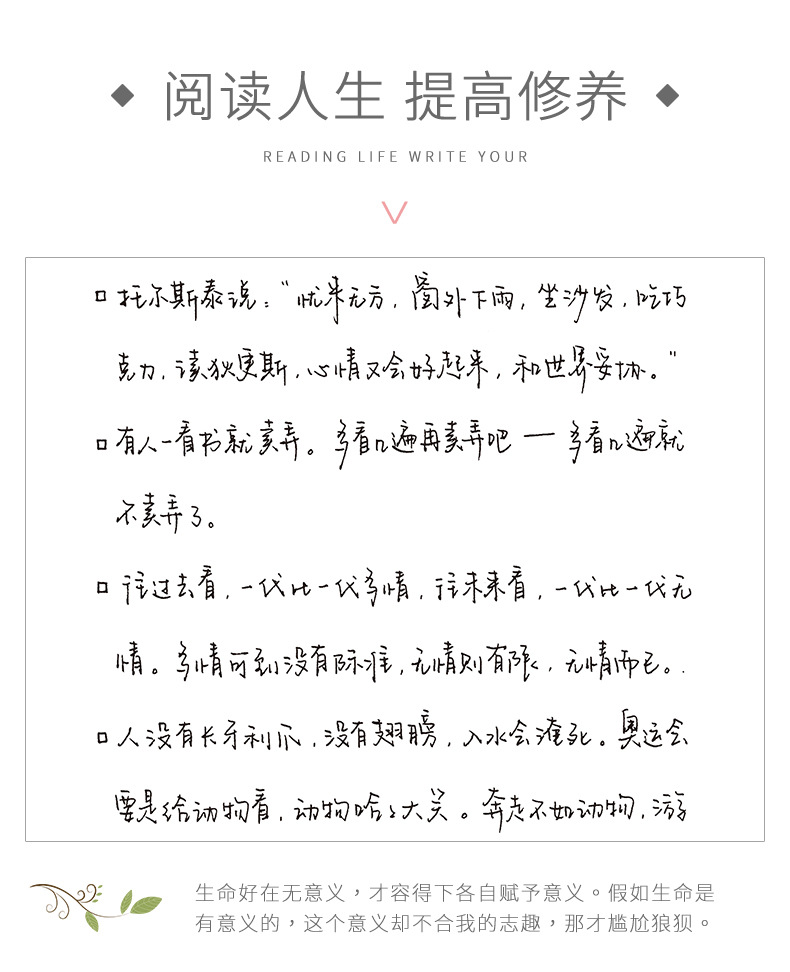 阅读人生 提高修养
READING LIFE WRITE YOUR
托尔斯泰说:“忧来无方,窗外下雨,坐沙发,吃巧
克力,读狄更斯,心情又会好起来,和世界妥协。”
有人一看书就卖弄。多看几遍再卖弄吧——多看几遍就
不卖弄了。
往过去看,一代比一代多情,往未来看,一代比一代无
情。多情可到没有际涯,无情则有限,无情而已。
人没有长牙利爪,没有翅膀,入水会淹死。奥运会
要是给动物看,动物哈哈大笑。奔走不如动物,游
生命好在无意义,才容得下各自赋予意义。假如生命是
有意义的,这个意义却不合我的志趣,那才尴尬狼狈。